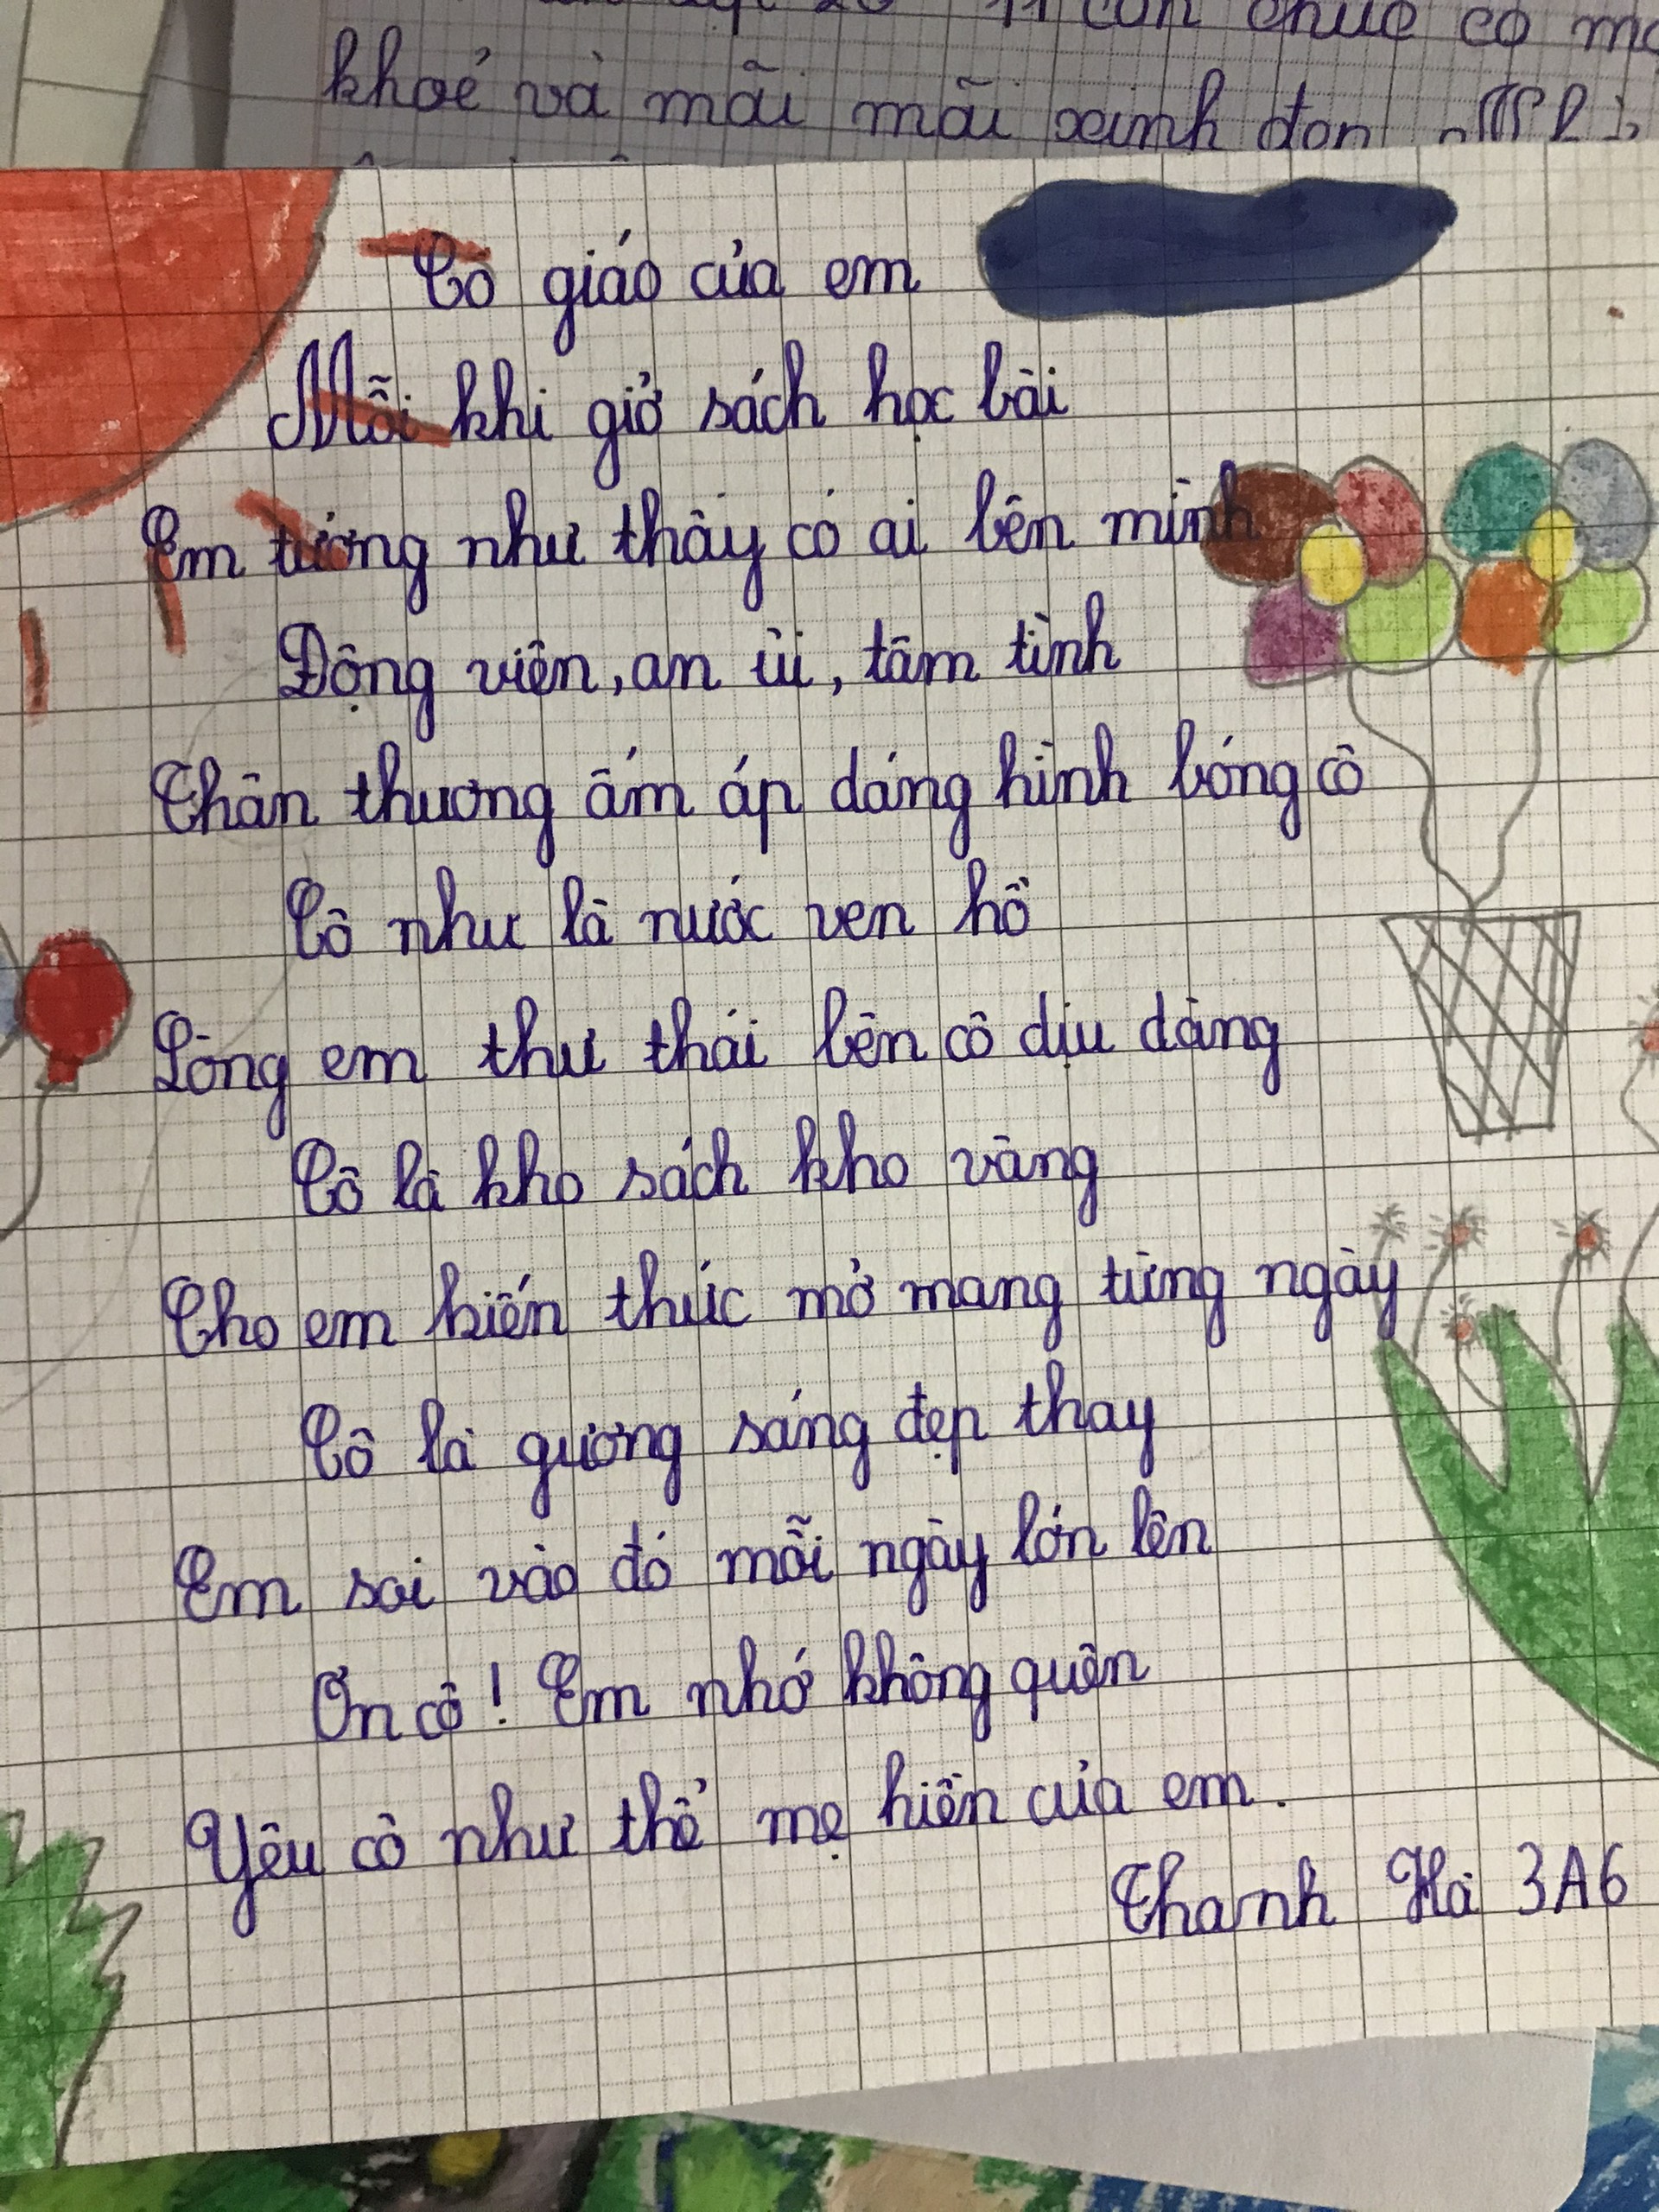 11 con chúc cô
khoẻ và mãi mãi xinh đẹp
Cô giáo của em
Mỗi khi giở sách học bài
Em tưởng như thây có ai bên mình
Động viên, an ủi, tâm tình
Thân thương ấm áp dáng hình bóng cô
Cô như là nước ven hồ
Lòng em thư thái bên cô dịu dàng
Cô là kho sách kho vàng
Cho em kiến thức mở mang từng ngày
Cô là gương sáng đẹp thay
Em soi vào đó mỗi ngày lớn lên
Ơn cô! Em nhớ không quên
Yêu cô như thể mẹ hiền của em.
Thanh Hà 3A6